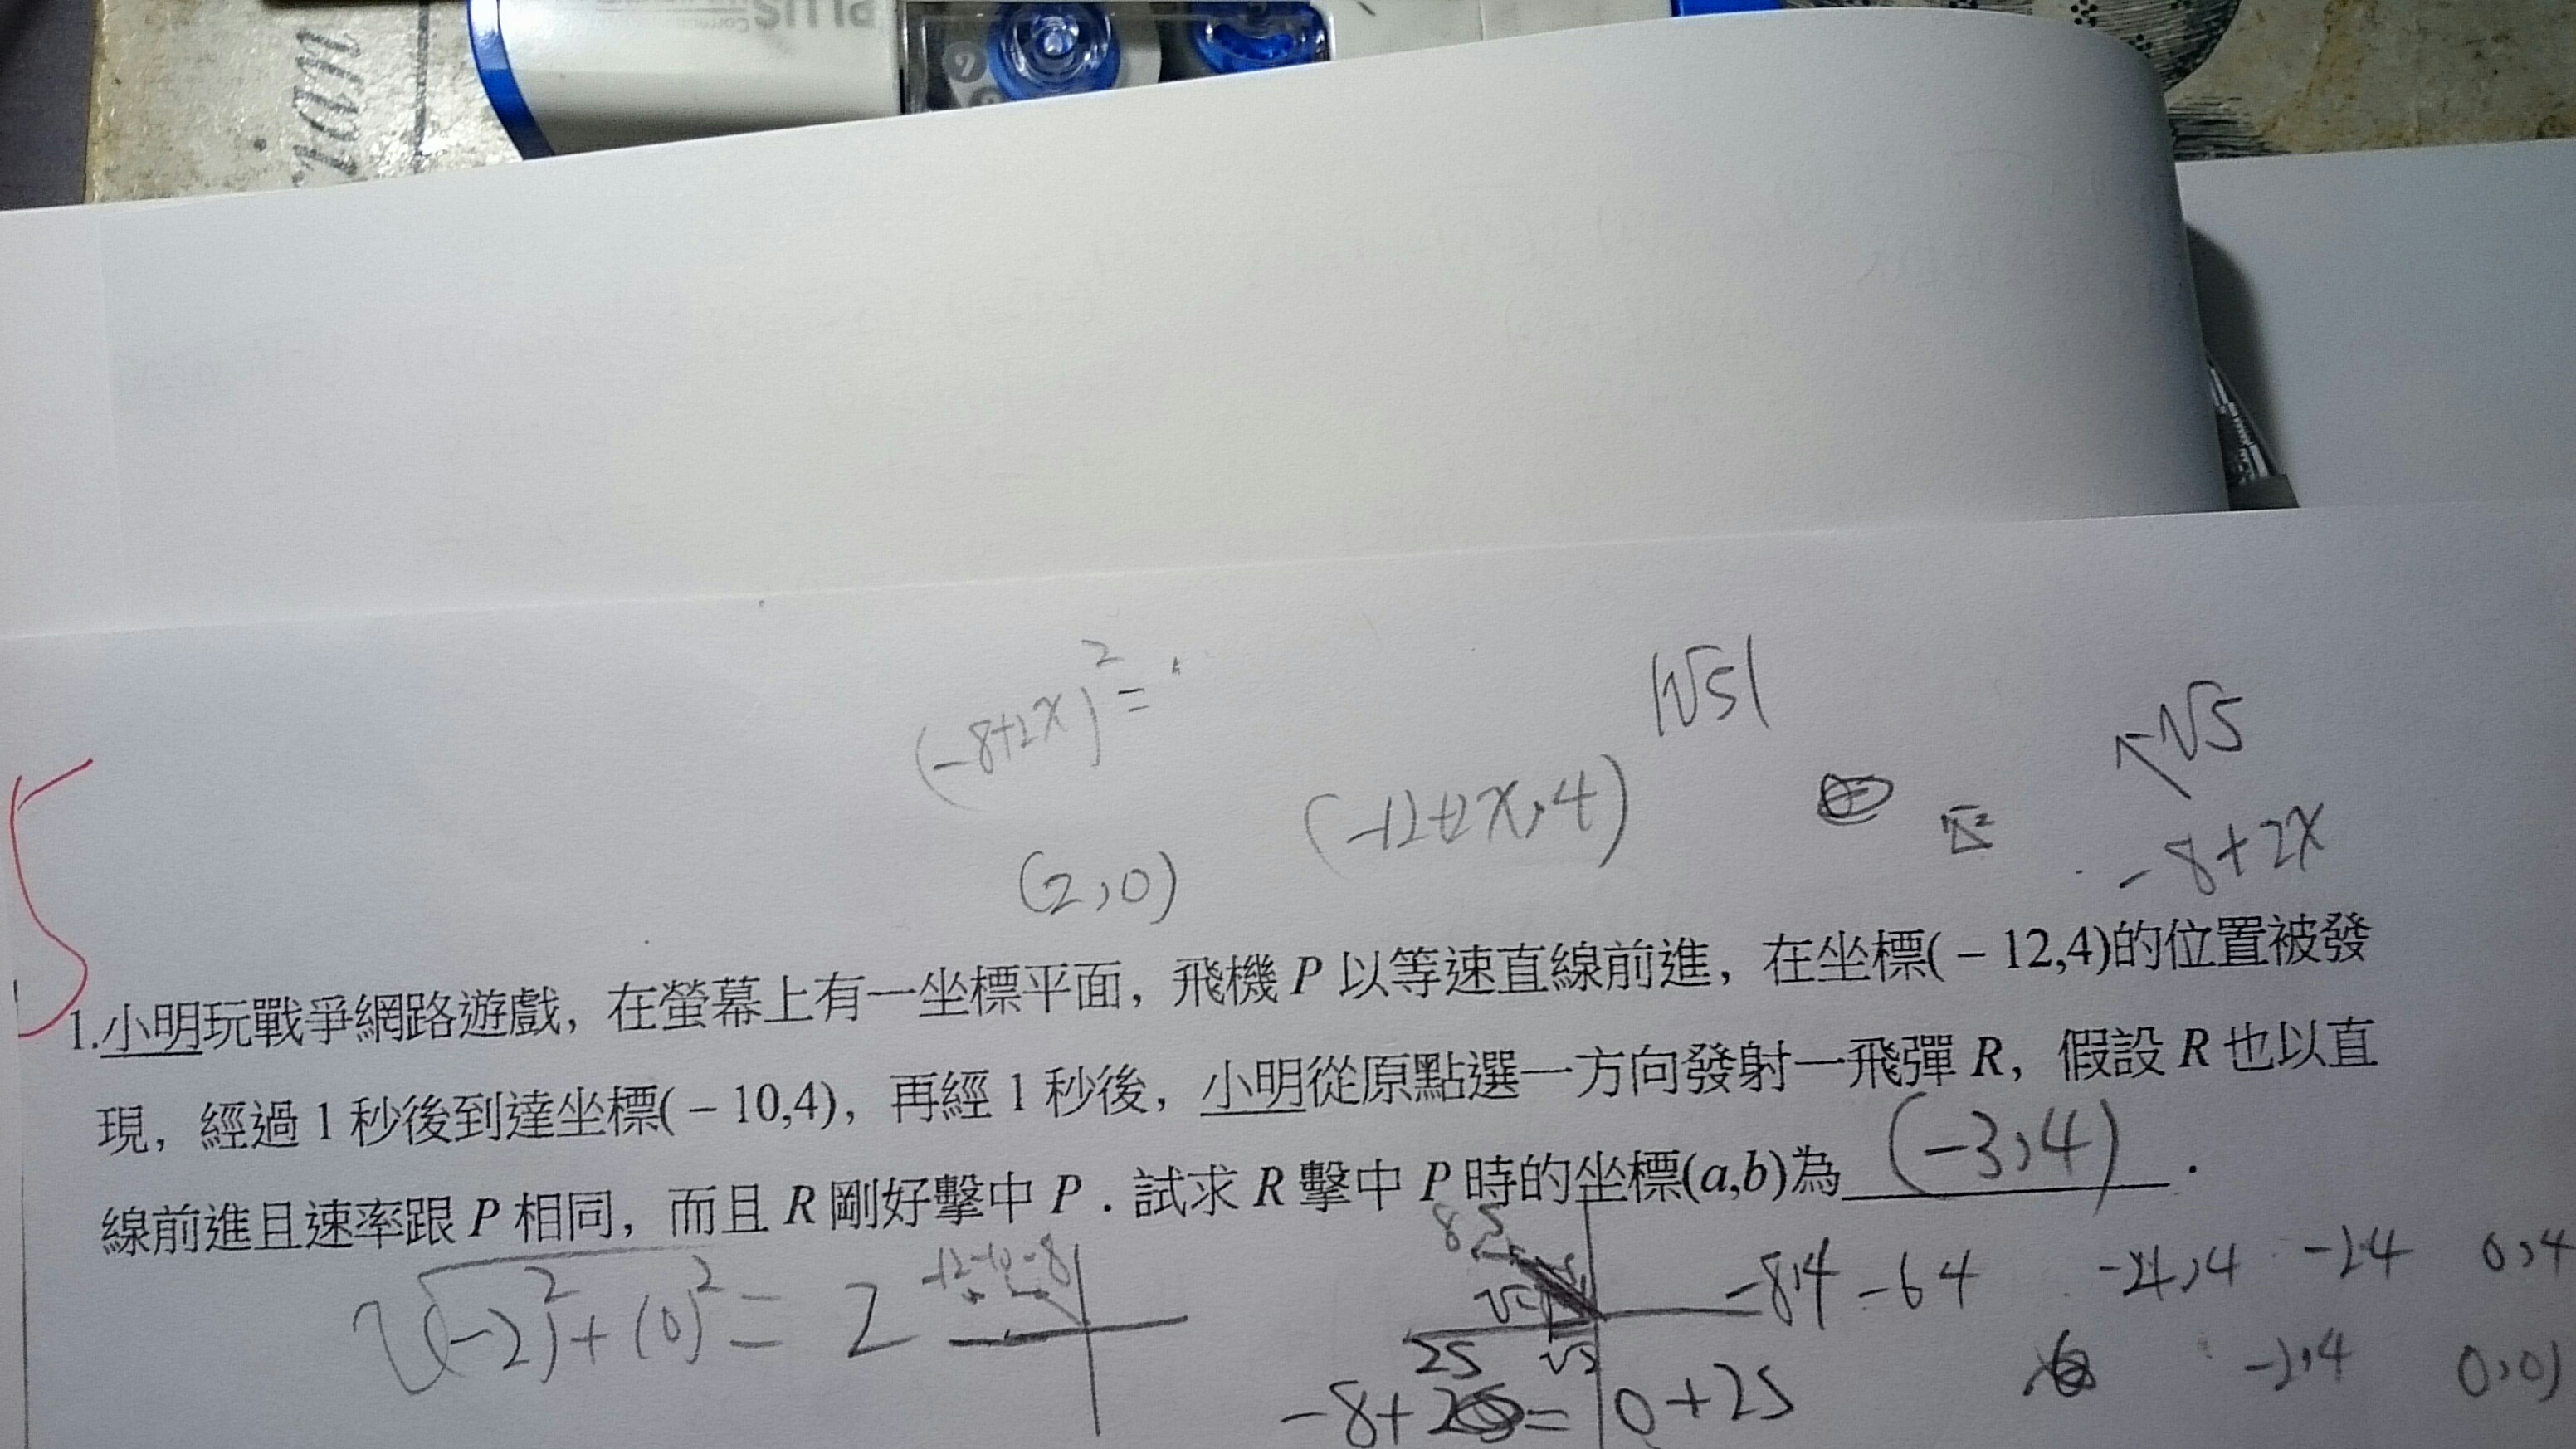 PLUS
ian
(-8+2x)² =
|√5|
√5
(-12+2x,4)
-8+2x
(2,0)
5
1.小明玩戰爭網路遊戲，在螢幕上有一坐標平面，飛機 P 以等速直線前進，在坐標(－12,4)的位置被發
現，經過 1 秒後到達坐標(－10,4)，再經 1 秒後，小明從原點選一方向發射一飛彈 R，假設 R 也以直
線前進且速率跟 P 相同，而且 R 剛好擊中 P．試求 R 擊中 P 時的坐標(a,b)為 (-3,4) ．
√(-2)²+(0)² = 2
-12 -10 -8
-8,4 -6 4 -4,4 -2 4 0,4
25
-2,4 0,0)
0+25